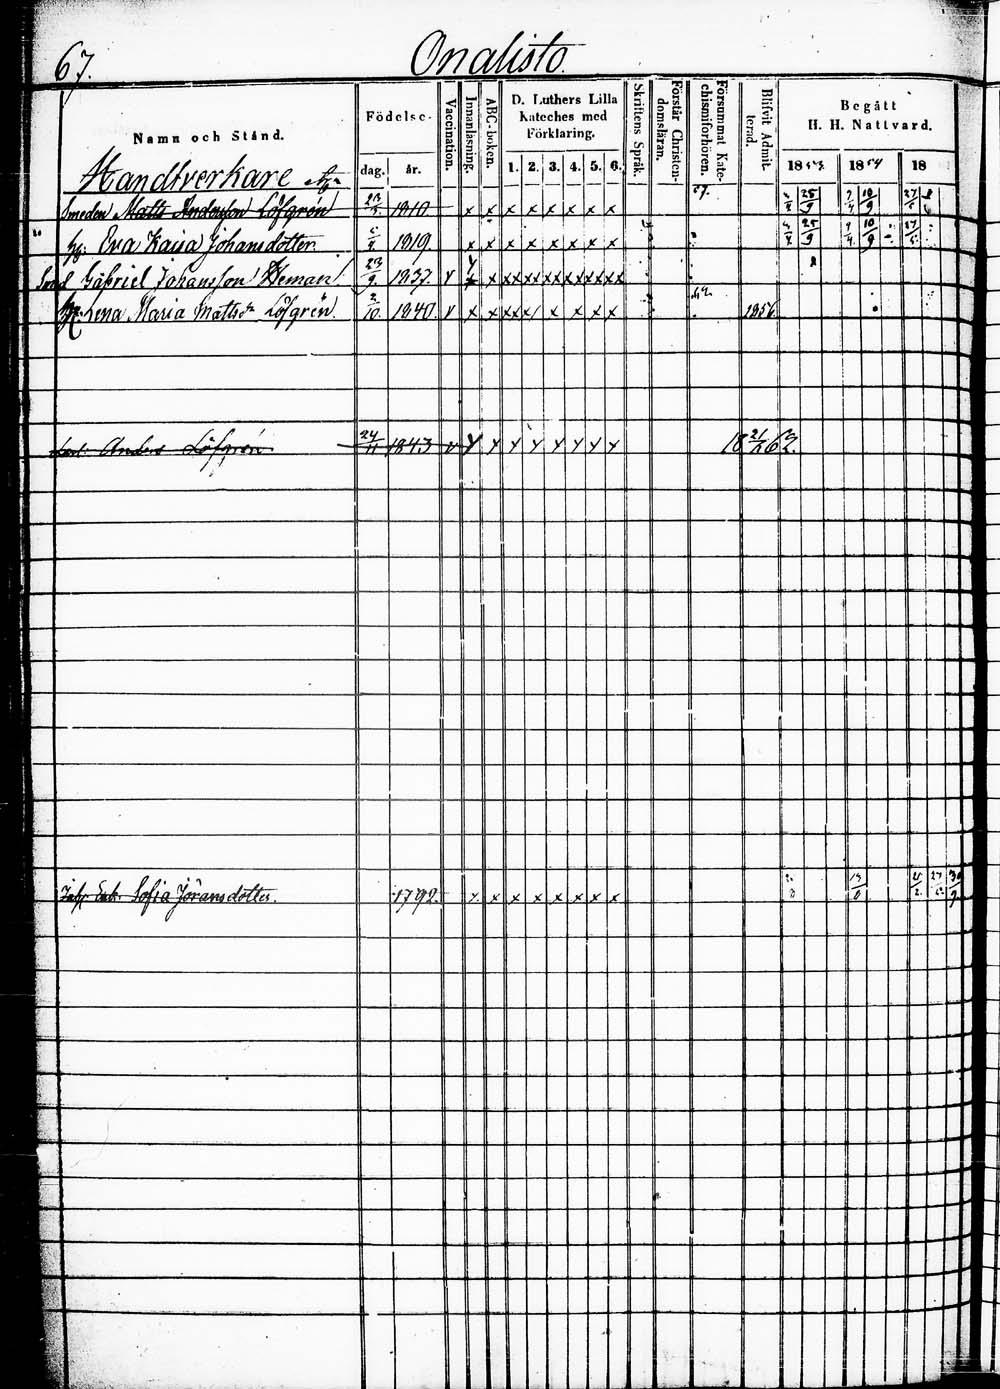 67. Onalisto.
Namn och Stånd.
Födelse-
dag. år.
Vaccination.
Innanläsning.
ABC-boken.
D. Luthers Lilla
Kateches med
Förklaring.
1. 2. 3. 4. 5. 6.
Skriftens Språk.
Förstår Christen-
domsläran.
Försummat Kate-
chismiförhören.
Blifvit Admit-
terad.
Begått
H. H. Nattvard.
1853 1854 18
Handtverkare
Smeden Matts Andersson Löfgrén 1810 x x x x x x x x 25/9 10/9
h: Eva Kajsa Johansdotter 1819 x x x x x x x x 25/9 10/9
Gabriel Johansson Heman 23/9 1837 v
Lena Maria Mattsdr Löfgrén 2/10 1840 v 1856
Anders Löfgrén 24/11 1843 v x x x x x x x 62.
Enk. Sofia Jöransdotter. 1792. x x x x x x x x